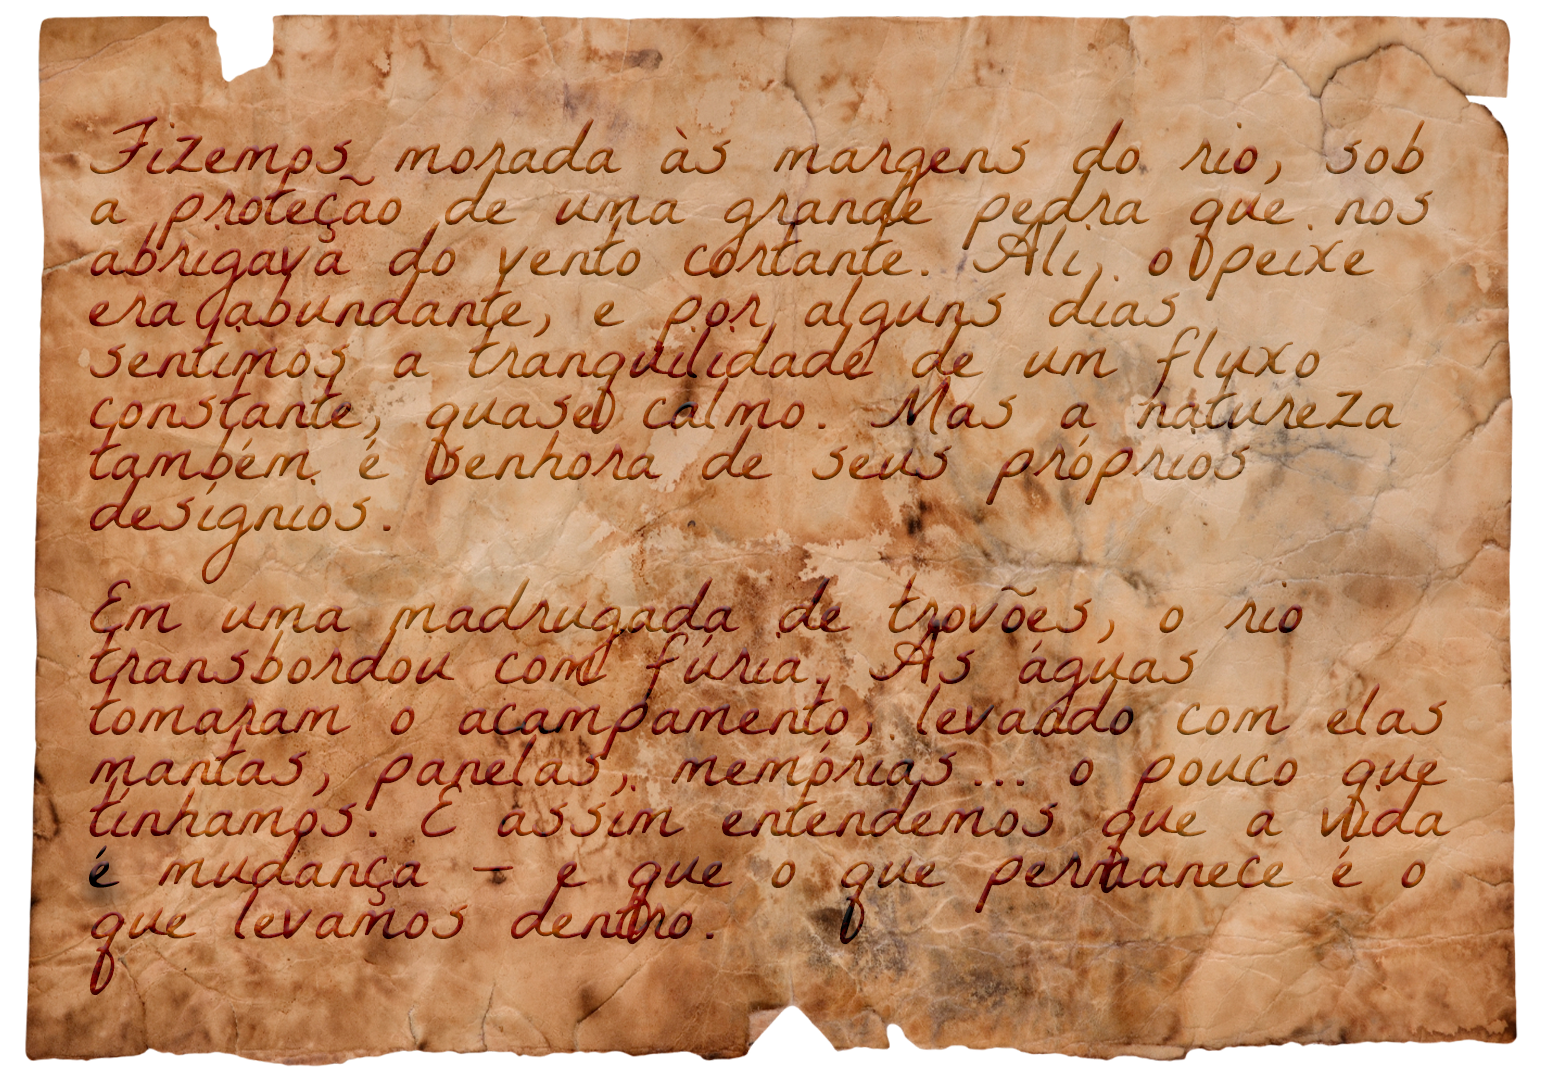 Fizemos morada às margens do rio, sob
a proteção de uma grande pedra que nos
abrigava do vento cortante. Ali, o peixe
era abundante, e por alguns dias
sentimos a tranquilidade de um fluxo
constante, quase calmo. Mas a natureza
também é senhora de seus próprios
desígnios.
Em uma madrugada de trovões, o rio
transbordou com fúria. As águas
tomaram o acampamento, levando com elas
mantas, panelas, memórias... o pouco que
tínhamos. E assim entendemos que a vida
é mudança — e que o que permanece é o
que levamos dentro.